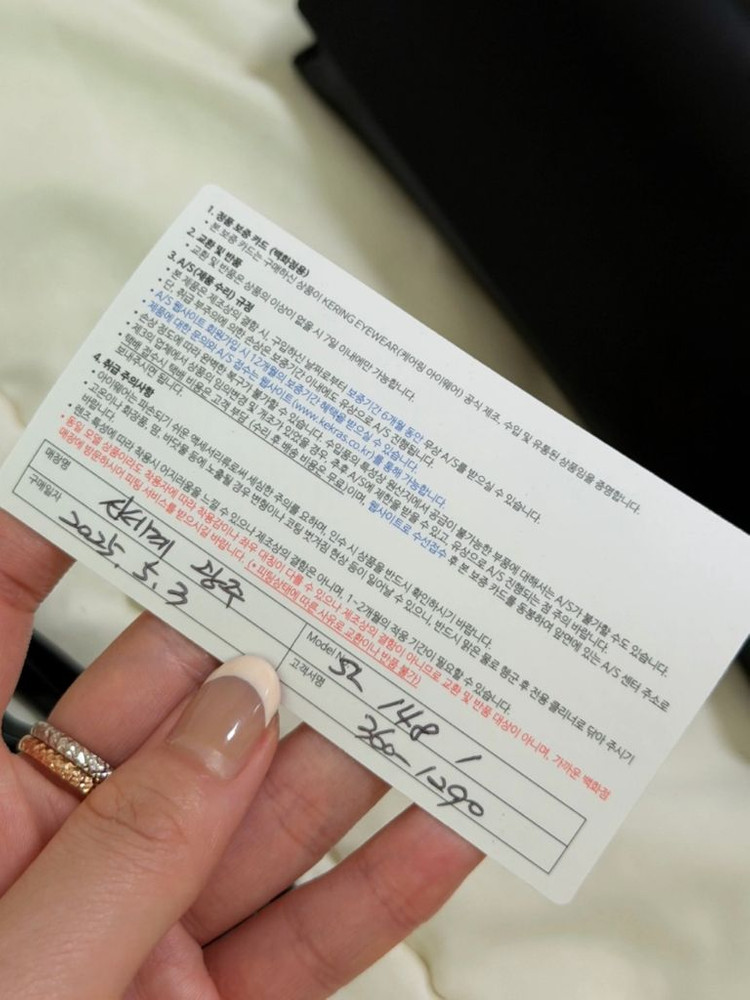 1. 정품 보증 카드 (백화점용)
• 본 보증 카드는 구매하신 상품이 KERING EYEWEAR(케어링 아이웨어) 공식 제조, 수입 및 유통된 상품임을 증명합니다.
2. 교환 및 반품
• 교환 및 반품은 상품의 이상이 없을 시 7일 이내에만 가능합니다.
3. A/S (제품 수리) 규정
• 본 제품은 제조상의 결함 시, 구입하신 날짜로부터 보증기간 6개월 동안 무상 A/S를 받으실 수 있습니다.
• 단, 취급 부주의에 의한 손상은 보증기간 이내에도 유상으로 A/S 진행됩니다.
• A/S 웹사이트 회원가입 시 12개월의 보증기간 혜택을 받으실 수 있습니다.
• 제품에 대한 문의와 A/S 접수는 웹사이트(www.kekras.co.kr)를 통해 가능합니다.
• 손상 정도에 따라 완벽한 복구가 불가할 수 있습니다. 수입품의 특성상 원산지에서 공급이 불가능한 부품에 대해서는 A/S가 불가할 수도 있습니다.
• 제3의 업체에서 상품의 임의변경 및 개조가 있었을 경우, 추후 A/S에 제한을 받을 수 있고, 유상으로 A/S 진행되는 점 주의 바랍니다.
• 택배 접수시 택배 비용은 고객 부담 (수리 후 배송 비용은 무료)이며, 웹사이트로 수선접수 후 본 보증 카드를 동봉하여 앞면에 있는 A/S 센터 주소로
보내주시면 됩니다.
4. 취급 주의사항
• 아이웨어는 파손되기 쉬운 액세서리류로써 세심한 주의를 요하며, 인수 시 상품을 반드시 확인하시기 바랍니다.
• 고온이나 화장품, 땀, 바닷물 등에 노출될 경우 변형이나 코팅 벗겨짐 현상 등이 일어날 수 있으니, 반드시 맑은 물로 헹군 후 전용 클리너로 닦아 주시기
바랍니다.
• 렌즈 특성에 따라 착용시 어지러움을 느낄 수 있으나 제조상의 결함은 아니며, 1~2개월의 적응 기간이 필요할 수 있습니다.
• 동일 모델 상품이라도 착용자에 따라 착용감이나 좌우 대칭이 다를 수 있으나 제조상의 결함이 아니므로 교환 및 반품 대상이 아니며, 가까운 백화점
매장에 방문하시어 피팅 서비스를 받으시길 바랍니다. (*피팅상태에 따른 사유로 교환이나 반품 불가)
매장명 광주
Model SL 148 /
구매일자 2025. 5. 3
고객서명 360-1290